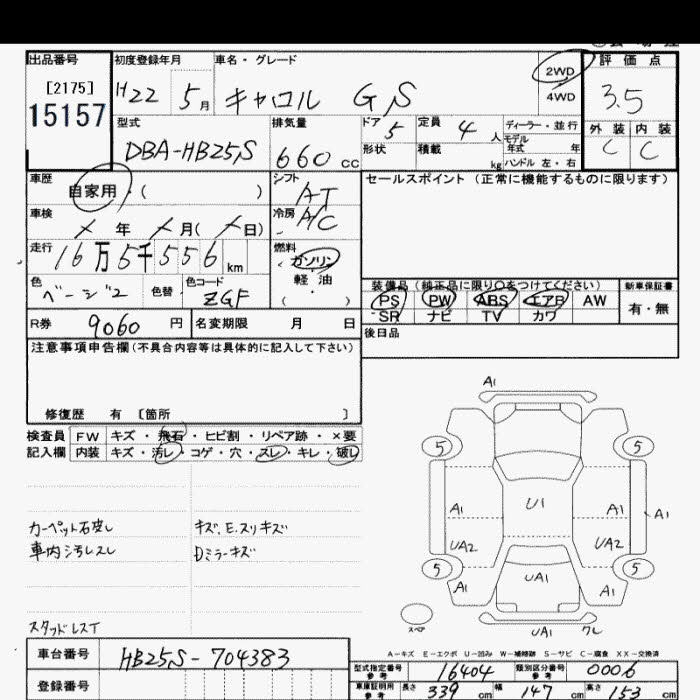 出品番号 初度登録年月 車名・グレード 2WD 評価点
[2175] H22 5月 キャロル GS 4WD 3.5
15157
型式 排気量 ドア 5 定員 4人 ディーラー・並行 外装 内装
DBA-HB25S 660cc 形状 積載 kg モデル年式 年 C C
ハンドル 左・右
車歴 自家用・( ) シフト AT セールスポイント (正常に機能するものに限ります)
車検 年 月( 日) 冷房 A/C
走行 16万5千556km 燃料 ガソリン
軽油
( )
色 ベージ2 色替 色コード ZGF
装備品 (純正品に限り○をつけてください) 新車保証書
PS PW ABS エアB AW 有・無
SR ナビ TV カワ
R券 9060円 名変期限 月 日 後日品
注意事項申告欄 (不具合内容等は具体的に記入して下さい)
修復歴 有 〔箇所 〕
検査員 FW キズ・飛石・ヒビ割・リペア跡・×要
記入欄 内装 キズ・汚レ・コゲ・穴・スレ・キレ・破レ
A1
5 5
A1 U1 A1 A1
UA2 UA2
5 5
A1 UA1 A1
UA1
スペア
キズ、E.スリキズ
車内汚レスレ Dミラーキズ
スタッドレスT
A-キズ E-エクボ U-凹み W-補修跡 S-サビ C-腐食 XX-交換済
車台番号 HB25S-704383
型式指定番号 参考 16404 類別区分番号 参考 0006
登録番号
車庫証明用 参考 長さ 339cm 幅 147cm 高さ 153cm